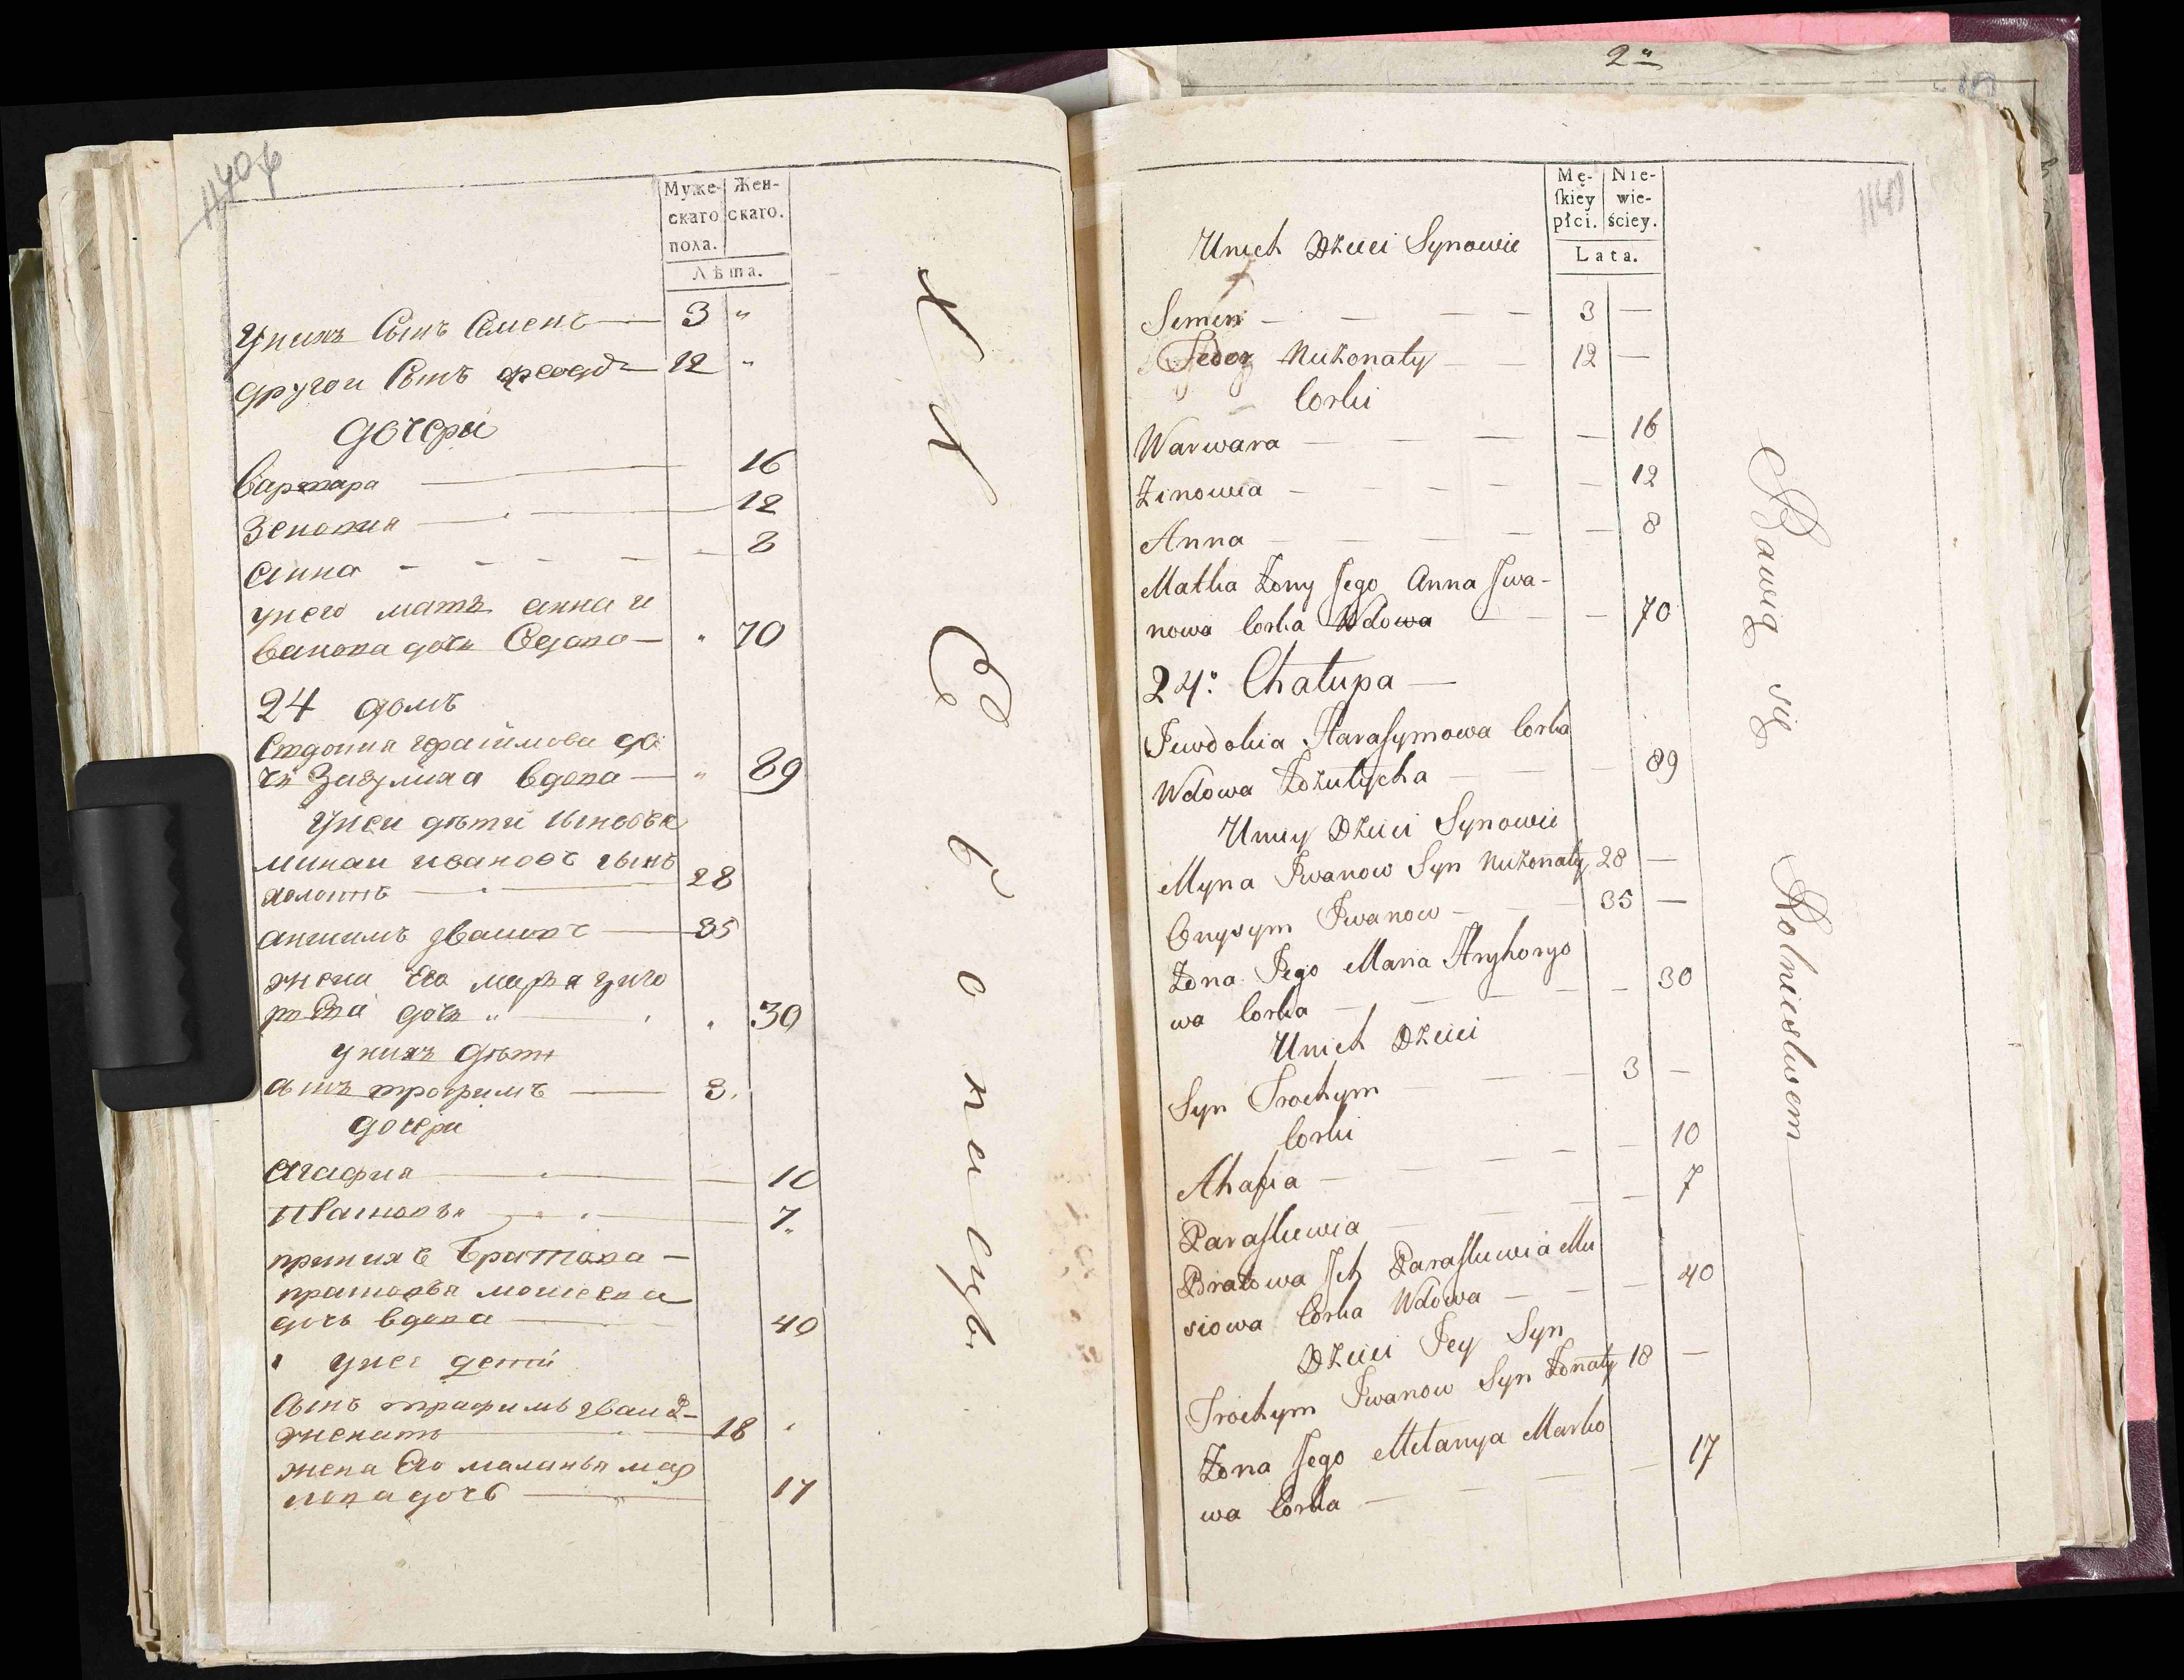 1140 об
Муже-
скаго
пола.
Жен-
скаго.
Лѣта.
унихъ Сынъ Семенъ — 3 "
другои Сынъ феодоръ — 12 "
дочери
Варвара — 16
Зеновия — 12
Анна - - - - 8
унего мать анна и
ванова дочь Вдова — " 70
24 домъ
дочь вдова — " 89
унеи дѣти
минаи ивановъ сынъ
холостъ — 28
анисимъ ивановъ — 35
жена Его марья григо
рьева дочь " — 30
унихъ дѣти
сынъ трофимъ — 3.
дочери
агафия — 10
— 7.
принихъ братова —
мосеева
дочь вдова — 40
унее дети
сынъ трафимъ ивановъ
женатъ — 18
жена Его маланья мар
кова дочь — 17
2"
1140
Mę-
ſkiey
płci.
Nie-
wie-
ściey.
Lata.
Unich Dzieci Synowie
Semen — — — — 3 —
Fedor Nieżonaty — — 12 —
Corki
Warwara — — — — 16
Zinowia — — — — — 12
Anna — — — — — 8
Matka Żony Jego Anna Jwa-
nowa Corka Wdowa — — — 70
24° Chałupa —
Jewdokia Harasymowa Corka
Wdowa — — — 89
Uniey Dzieci Synowie
Myna Jwanow Syn Nieżonaty 28 —
Onysym Jwanow — — 35 —
Żona Jego Maria Hryhoryo
wa Corka — — — — — 30
Unich Dzieci
Syn Trochym — — 3 —
Corki — 10
Ahafia — — — — 7
Paraskiewia — — —
Bratowa Jch Paraskiewia Mu
siowa Corka Wdowa — — — 40
Dzieci Jey Syn
Trochym Jwanow Syn Żonaty 18 —
Żona Jego Melanya Marko
wa Corka — — — — 17
Bawią się Rolnictwem